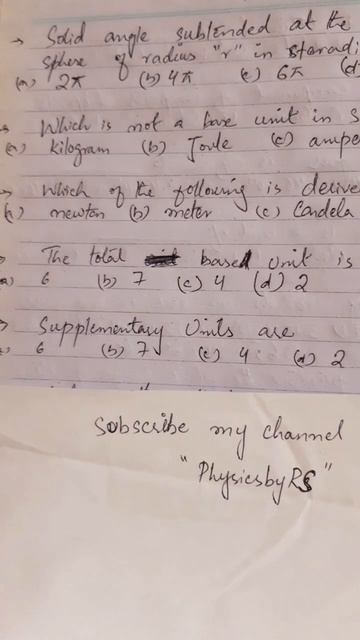 → Solid angle subtended at the
sphere of radius "r" in steradi
(a) 2π (b) 4π (c) 6π (d
Which is not a base unit in S
kilogram (b) Joule (c) ampe
→ Which of the following is derive
newton (b) meter (c) Candela
The total based Unit is
6 (b) 7 (c) 4 (d) 2
Supplementary Units are
6 (b) 7 (c) 4 (d) 2
Subscribe my channel
"PhysicsbyRS"